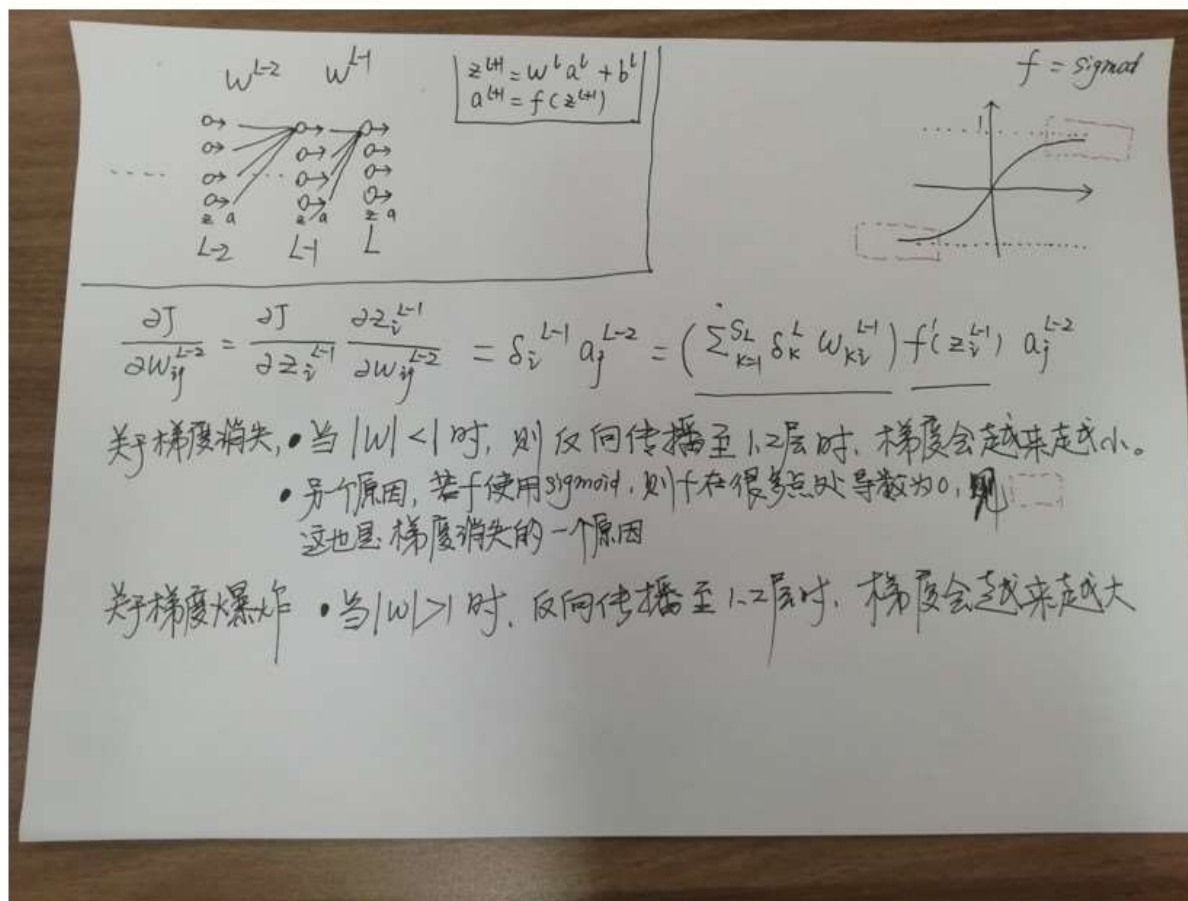 W^{L-2} W^{L-1}
z^{L+1} = w^L a^L + b^L
a^{L+1} = f(z^{L+1})
z a z a z a
L-2 L-1 L
f = sigmod
1
∂J/∂w_{ij}^{L-2} = ∂J/∂z_i^{L-1} ∂z_i^{L-1}/∂w_{ij}^{L-2} = δ_i^{L-1} a_j^{L-2} = (Σ_{k=1}^{S_L} δ_k^L w_{ki}^{L-1}) f'(z_i^{L-1}) a_j^{L-2}
关于梯度消失, • 当 |W| < 1 时, 则反向传播至 1、2层时, 梯度会越来越小。
• 另一个原因, 若f使用sigmoid, 则f在很多点处导数为0, 则
这也是梯度消失的一个原因
关于梯度爆炸 • 当|W|>1 时, 反向传播至 1、2层时, 梯度会越来越大